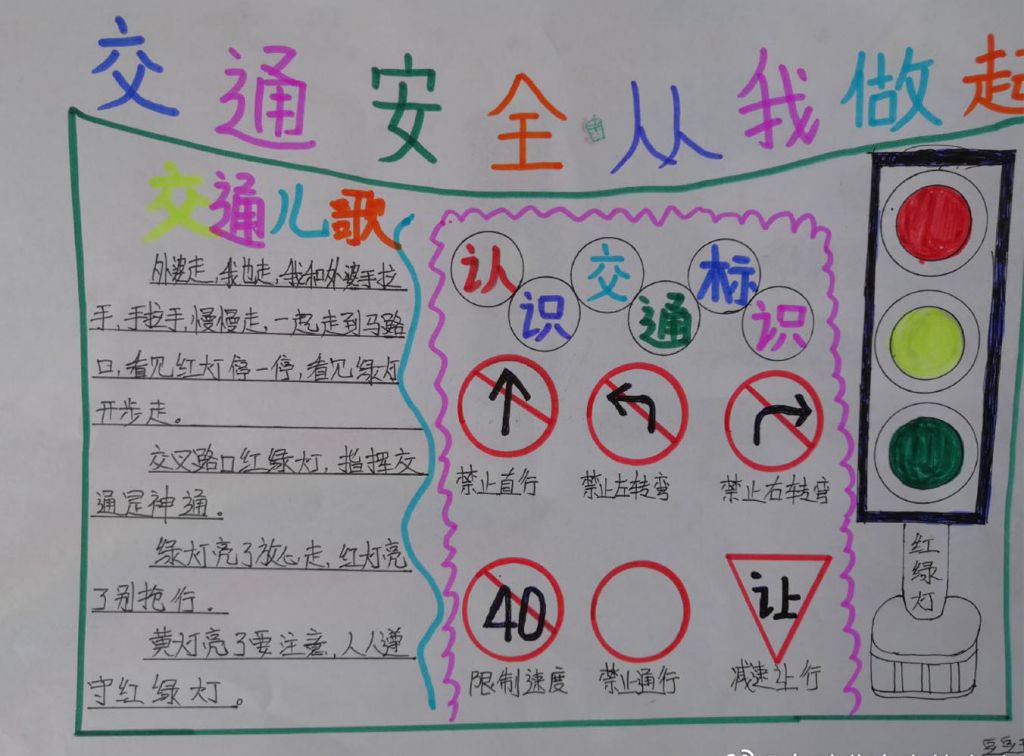 交通安全从我做起
交通儿歌
外婆走,我也走,我和外婆手拉
手,手拉手,慢慢走,一起走到马路
口,看见红灯停一停,看见绿灯
开步走。
交叉路口红绿灯,指挥交
通是神通。
绿灯亮了放心走,红灯亮
了别抢行。
黄灯亮了要注意,人人遵
守红绿灯。
认识交通标识
禁止直行
禁止左转弯
禁止右转弯
40
让
限制速度
禁止通行
减速让行
红
绿
灯